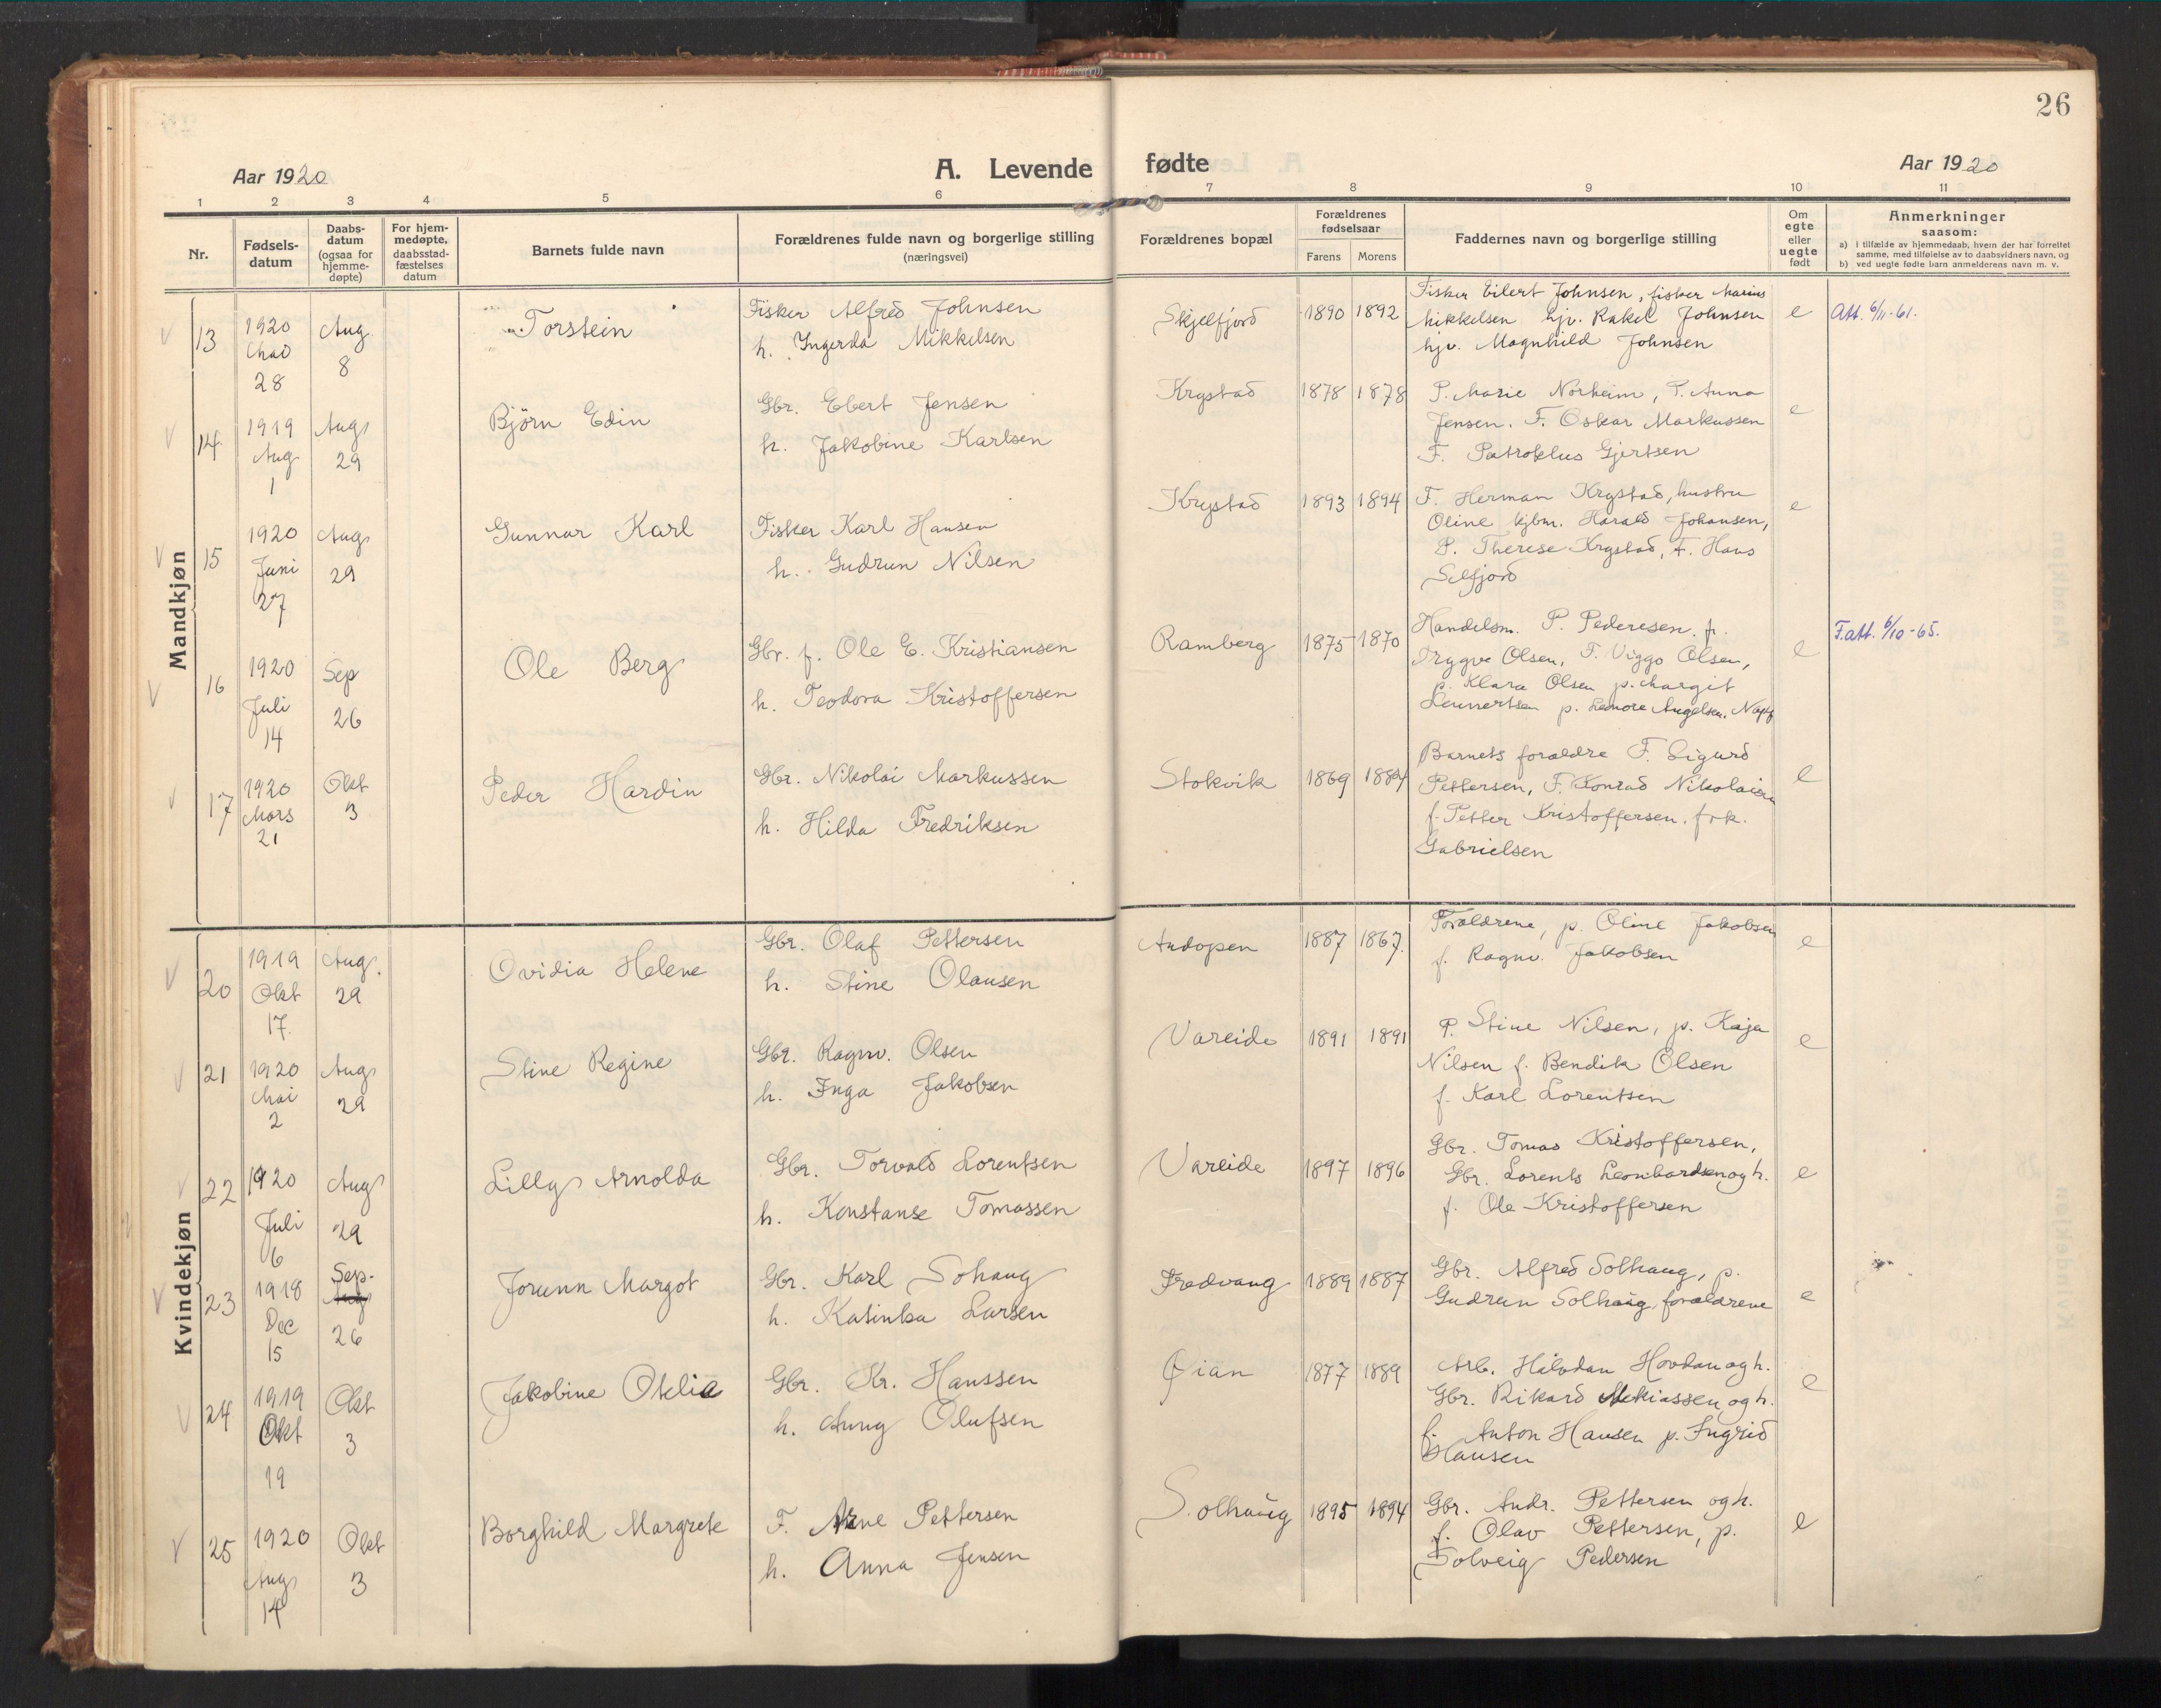 26
Aar 1920
A. Levende fødte
Aar 1920
1 2 3 4 5 6 7 8 9 10 11
Nr.
Fødsels-
datum
Daabs-
datum
(ogsaa for
hjemme-
døpte)
For hjem-
medøpte,
daabsstad-
fæstelses
datum
Barnets fulde navn
Forældrenes fulde navn og borgerlige stilling
(næringsvei)
Forældrenes bopæl
Forældrenes
fødselsaar
Farens Morens
Faddernes navn og borgerlige stilling
Om
egte
eller
uegte
født
Anmerkninger
saasom:
a) i tilfælde av hjemmedaab, hvem der har forrettet
samme, med tilføielse av to daabsvidners navn, og
b) ved uegte fødte barn anmelderens navn m. v.
Mandkjøn
13
1920
Mad
28
Aug
8
Torstein
Fisker Alfred Johnsen
h. Ingerda Mikkelsen
Skjelfjord
1890 1892
Fisker Eilert Johnsen, fisker Marius
Mikkelsen hjv. Rakel Johnsen
hjv. Magnhild Johnsen
e
Att. 6/11-61.
14
1919
Aug
1
Aug
29
Björn Edin
Gbr. Ebert Jensen
h. Jakobine Karlsen
Krystad
1878 1878
P. Marie Norheim, P. Anna
Jensen. F. Oskar Markussen
F. Patroklus Gjertsen
e
15
1920
Juni
27
Aug
29
Gunnar Karl
Fisker Karl Hansen
h. Gudrun Nilsen
Krystad
1893 1894
F. Herman Krystad, hustru
Oline kjbm. Harald Johansen,
P. Therese Krystad, F. Hans
Selfjord
e
16
1920
Juli
14
Sep
26
Ole Berg
Gbr. f. Ole E. Kristiansen
h. Teodora Kristoffersen
Ramberg
1875 1870
Handelsm. P. Pederesen. f.
Trygve Olsen, F. Viggo Olsen,
p. Klara Olsen p. Margit
Lennertsen p. Lenore Angelsen.
e
F.att. 6/10-65.
17
1920
Mars
21
Okt
3
Peder Hardin
Gbr. Nikolai Markussen
h. Hilda Fredriksen
Stokvik
1869 1884
Barnets foraldre F. Sigurd
Pettersen, F. Konrad Nikolaisen
f. Petter Kristoffersen. frk.
Gabrielsen
e
Kvindekjøn
20
1919
Okt
17.
Aug.
29
Ovidia Helene
Gbr. Olaf Pettersen
h. Stine Olausen
Andopen
1887 1867.
Foraldrene, p. Oline Jakobsen
f. Ragnv. Jakobsen
e
21
1920
Mai
2
Aug
29
Stine Regine
Gbr. Ragnv. Olsen
h. Inga Jakobsen
Vareide
1891 1891
P. Stine Nilsen, p. Kaja
Nilsen f. Bendik Olsen
f. Karl Lorentsen
e
22
1920
Juli
6
Aug
29
Lilly Arnolda
Gbr. Torvald Lorentsen
h. Konstanse Tomassen
Vareide
1897 1896
Gbr. Tomas Kristoffersen,
Gbr. Lorents Leonhardsen og h.
f. Ole Kristoffersen
e
23
1918
Dec
15
Sep.
Aug
26
Jorunn Margot
Gbr. Karl Sohaug
h. Katinka Larsen
Fredvang
1889 1887
Gbr. Alfred Solhaug, p.
Gudrun Solhaug, foraldrene
e
24
1919
Okt
19
Okt
3
Jakobine Oklia
Gbr. Kr. Hanssen
h. Aung Olufsen
Øian
1877 1889
Arb. Halvdan Hovdan og h.
Gbr. Rikard Mekiassen og h.
f. Anton Hansen p. Ingrid
Hansen
e
25
1920
Aug
14
Okt
3
Borghild Margrete
F. Arne Pettersen
h. Anna Jensen
Solhaug
1895 1894
Gbr. Andr. Pettersen og h.
f. Olav Pettersen, p.
Solveig Pedersen
e